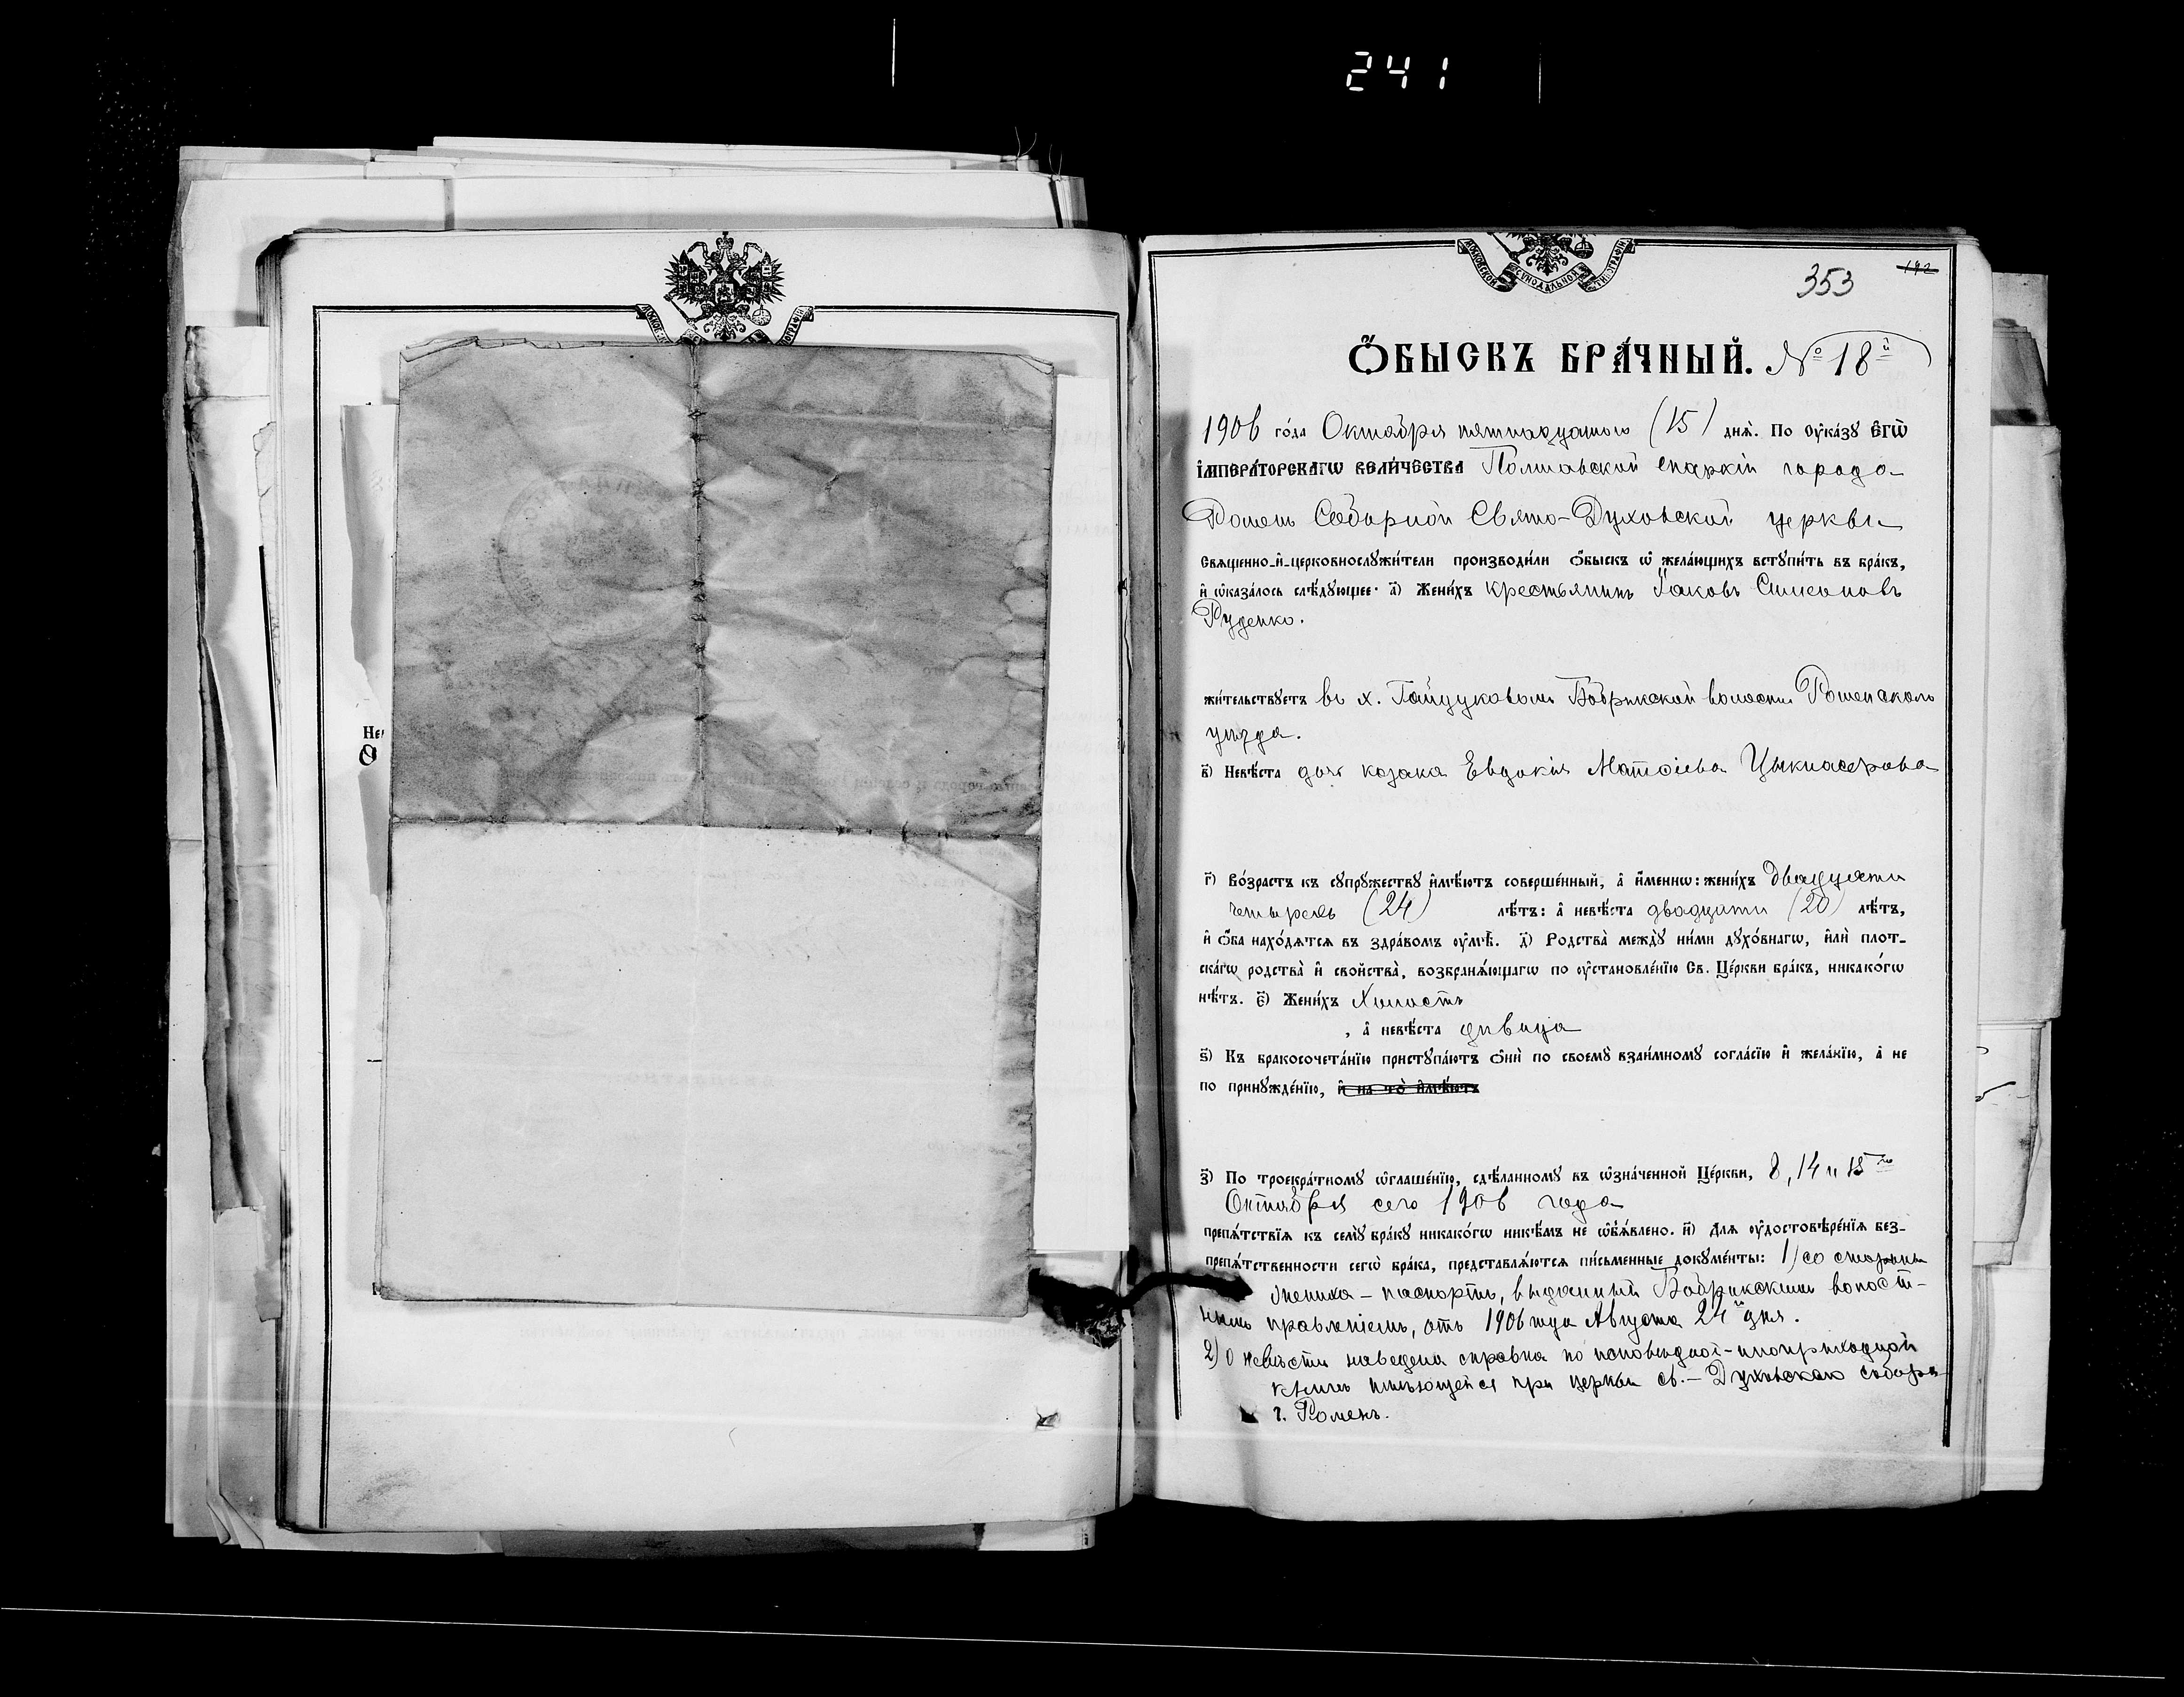 241
МОСКОВСКОЙ СѴНОДАЛЬНОЙ ТИПОГРАФІИ
353
192
Ѻ҆БЫСКЪ БРА́ЧНЫЙ. № 18й
1906 го́да Октября пятнадцатаго (15) днѧ̀. По ᲂу҆ка́зꙋ Е҆ГѠ̀
І҆МПЕРА́ТОРСКАГѠ ВЕЛИ́ЧЕСТВА Полтавской епархіи города
Роменъ Соборной Свято-Духовской церкви
Свѧщенно-и҆-церковнослꙋжи́тели производи́ли ѻ҆́быскъ ѡ҆ жела́ющихъ встꙋпи́ть въ бра́къ,
и҆ ѡ҆каза́лось слѣ́дꙋющее: а҃) Жени́хъ крестьянинъ Іаковъ Симеоновъ
Руденко.
жи́тельствꙋетъ въ х. Гайдуковомъ Бобрикской волости Роменскаго
уѣзда.
в҃) Невѣ́ста дочь козака Евдокія Матѳіева
г҃) Во́зрастъ къ сꙋпрꙋ́жествꙋ и҆мѣ́ютъ соверше́нный, а҆ и҆́меннѡ: жени́хъ двадцати
четырехъ (24) лѣ́тъ: а҆ невѣ́ста двадцати (20) лѣ́тъ,
и҆ ѻ҆́ба нахо́дѧтсѧ въ здра́вомъ ᲂу҆мѣ̀. д҃) Родства̀ междꙋ̀ ни́ми дꙋхо́внагѡ, и҆лѝ плот-
ска́гѡ родства̀ и҆ сво́йства̀, возбранѧ́ющагѡ по ᲂу҆становле́нїю Св. Це́ркви бра́къ, никако́гѡ
нѣ́тъ. є҃) Жени́хъ холостъ
, а҆ невѣ́ста дѣвица
ѕ҃) Къ бракосочета́нїю пристꙋпа́ютъ ѻ҆нѝ по своемꙋ̀ взаи́мномꙋ согла́сїю и҆ жела́нїю, а҆ не
по принꙋжде́нїю, и҆ на то̀ и҆мѣ́ютъ
з҃) По троекра́тномꙋ ѡ҆глаше́нїю, сдѣ́ланномꙋ въ ѡ҆зна́ченной Це́ркви, 8, 14 и 15го
Октября сего 1906 года
препѧ́тствїѧ къ семꙋ̀ бра́кꙋ никако́гѡ никѣ́мъ не ѡ҆б̾ѧ́влено. и҃) Длѧ ᲂу҆достовѣре́нїѧ без-
препѧ́тственности сегѡ̀ бра́ка, представлѧ́ютсѧ пи́сьменные докꙋме́нты: 1) со стороны
жениха – паспортъ, выданный Бобрикскимъ волост-
нымъ правленіемъ, отъ 1906 года Августа 24 дня.
2) о невѣстѣ наведена справка по исповѣдной
книгѣ имѣющейся при церкви св.–Духовскаго собора
г. Роменъ.